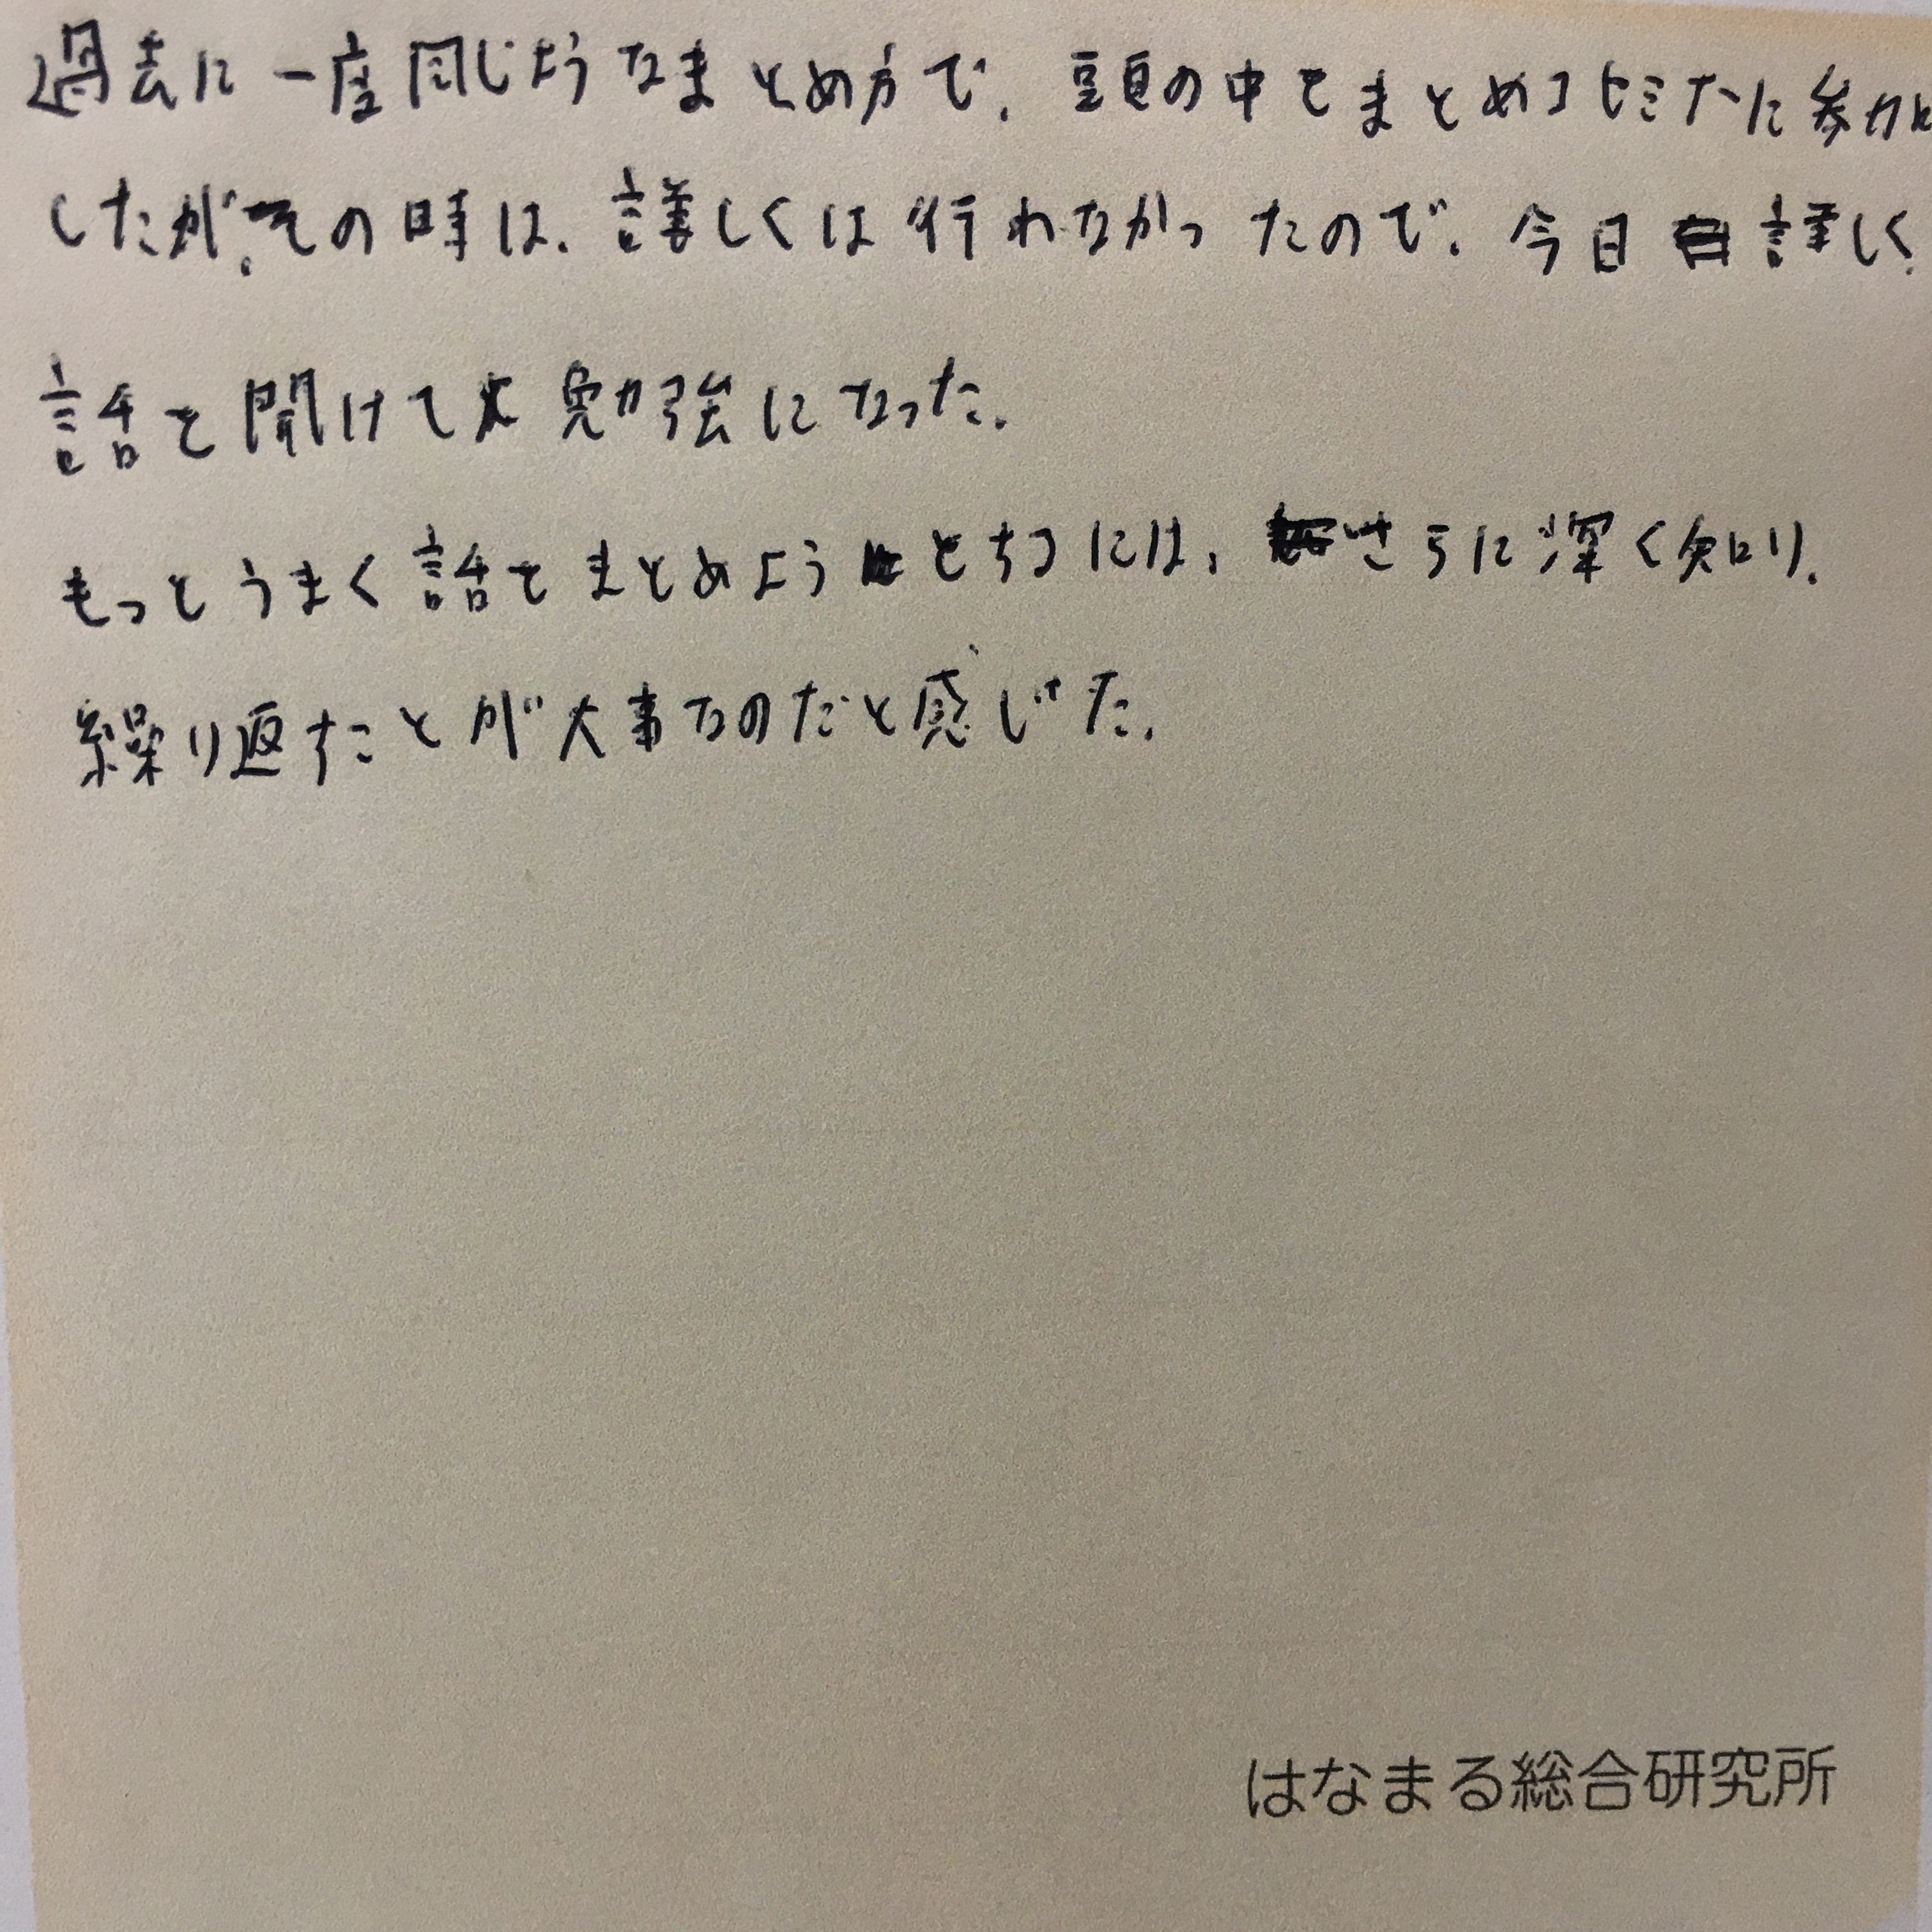 過去に一度同じようなまとめ方で、頭の中をまとめるセミナーに参加
したが、その時は、詳しくは行われなかったので、今日詳しく
話を聞けて大勉強になった。
もっとうまく話をまとめようとするには、さらに深く知り、
繰り返すことが大事なのだと感じた。
はなまる総合研究所